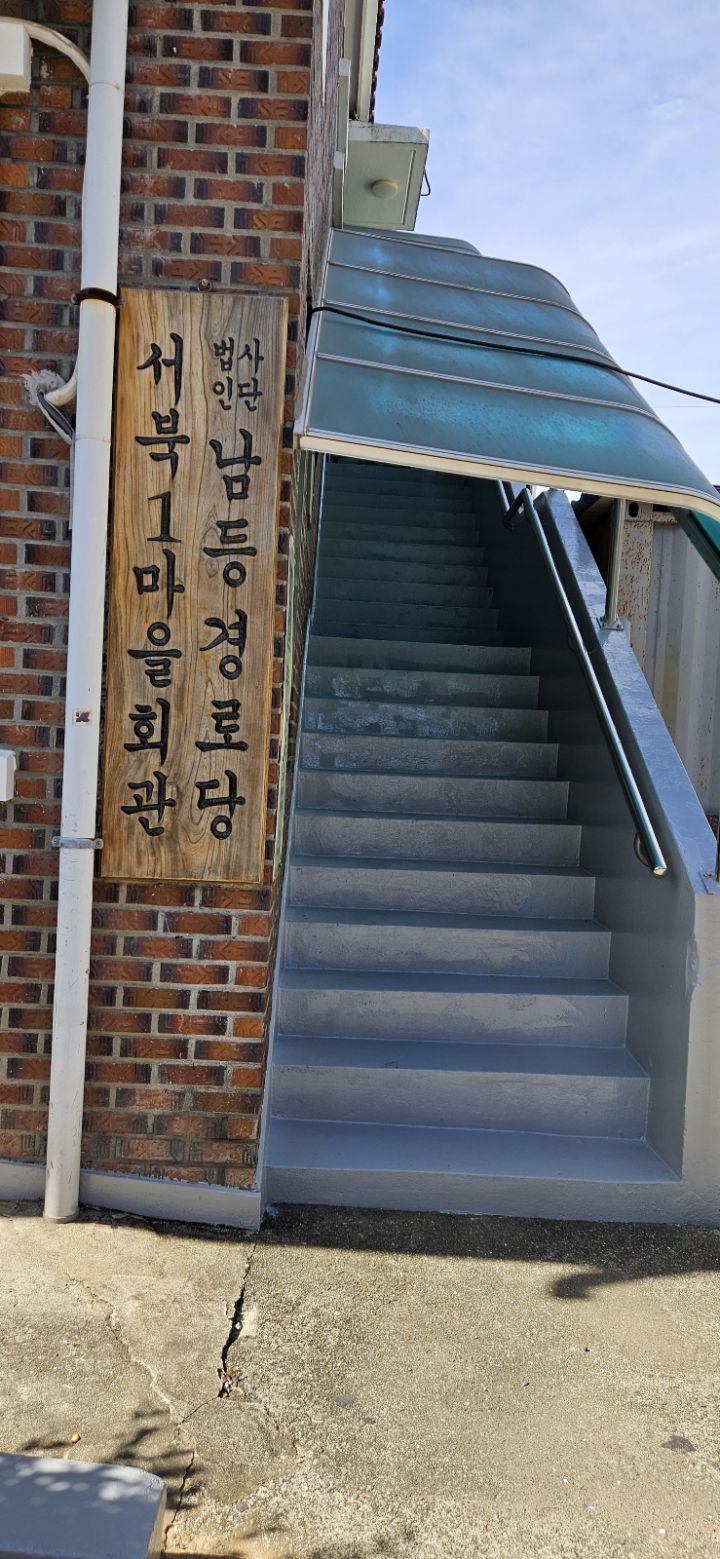 사단
법인
남등경로당
서북1마을회관